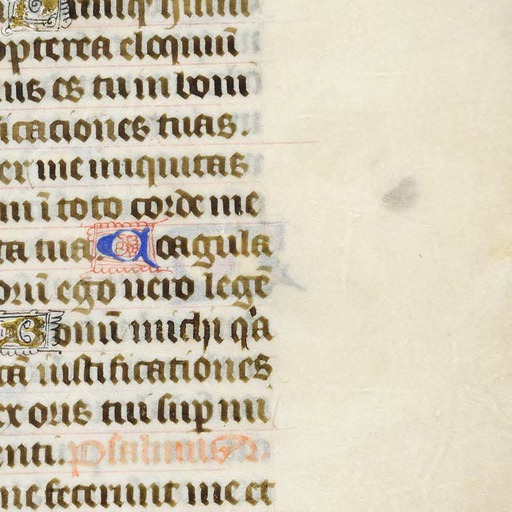 riusq̄ humi
opterea eloquiū
us es tu in boni
icaciones tuas.
er me iniquitas
m ī toto corde me
ta tua. Coagula
orū ego uero legē
Bonū michi q'a
cā iustificationes
ex oris tui sup mi
enti. Psalmus
me fecerunt me et